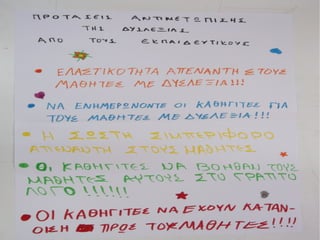 ΠΡΟΤΑΣΕΙΣ ΑΝΤΙΜΕΤΩΠΙΣΗΣ
ΤΗΣ ΔΥΣΛΕΞΙΑΣ
ΑΠΟ ΤΟΥΣ ΕΚΠΑΙΔΕΥΤΙΚΟΥΣ
ΕΛΑΣΤΙΚΟΤΗΤΑ ΑΠΕΝΑΝΤΗ ΣΤΟΥΣ
ΜΑΘΗΤΕΣ ΜΕ ΔΥΣΛΕΞΙΑ!!!
ΝΑ ΕΝΗΜΕΡΩΝΟΝΤΕ ΟΙ ΚΑΘΗΓΙΤΕΣ ΓΙΑ
ΤΟΥΣ ΜΑΘΗΤΕΣ ΜΕ ΔΥΣΛΕΞΙΑ!!!
Η ΣΩΣΤΗ ΣΙΜΠΕΡΙΦΟΡΟ
ΑΠΕΝΑΝΤΗ ΣΤΟΥΣ ΜΑΘΗΤΕΣ
ΟΙ ΚΑΘΗΓΙΤΕΣ ΝΑ ΒΟΗΘΑΝ ΤΟΥΣ
ΜΑΘΗΤΕΣ ΑΥΤΟΥΣ ΣΤΟ ΓΡΑΠΤΟ
ΛΟΓΟ !!!!!!
ΟΙ ΚΑΘΗΓΙΤΕΣ ΝΑ ΕΧΟΥΝ ΚΑΤΑΝ-
ΟΙΣΗ ΠΡΟΣ ΤΟΥΣ ΜΑΘΗΤΕΣ!!!!